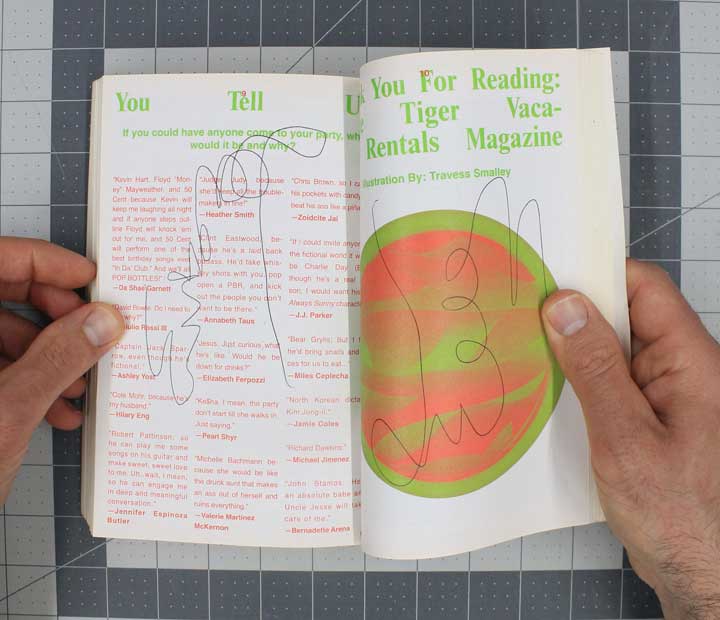 9
You Tell U
If you could have anyone come to your party, wh
would it be and why?
"Kevin Hart, Floyd "Mon-
ey" Mayweather, and 50
Cent because Kevin will
keep me laughing all night
and if anyone steps out-
line Floyd will knock 'em
out for me, and 50 Cent
will perform one of the
best birthday songs ever
"In Da' Club." And we'll all
POP BOTTLES!"
—Da Shae Garnett
"David Bowie. Do I need to
why?"
ulio Rossi III
"Captain Jack Spar-
row, even though he's
fictional."
—Ashley Yost
"Cole Mohr, because he's
my husband."
—Hilary Eng
"Robert Pattinson, so
he can play me some
songs on his guitar and
make sweet, sweet love
to me. Uh, wait, I mean,
so he can engage me
in deep and meaningful
conversation."
—Jennifer Espinoza
Butler
"Judge Judy because
she'll keep all the trouble-
makers in line!"
—Heather Smith
"Clint Eastwood, be-
cause he's a laid back
badass. He'd take whis-
key shots with you, pop
open a PBR, and kick
out the people you don't
want to be there."
—Annabeth Taus
"Jesus. Just curious what
he's like. Would he be
down for drinks?"
—Elizabeth Ferpozzi
"Ke$ha. I mean, this party
don't start till she walks in.
Just saying."
—Pearl Shyr
"Michelle Bachmann be-
cause she would be like
the drunk aunt that makes
an ass out of herself and
ruins everything."
—Valerie Martinez
McKernon
"Chris Brown, so I ca
his pockets with candy
beat his ass like a piña
—Zoidcite Jai
"If I could invite anyon
the fictional world it w
be Charlie Day (E
though he's a real
son, I would want his
Always Sunny characte
—J.J. Parker
"Bear Grylls. But I f
he'd bring snails and
ces for us to eat..."
—Miles Ceplecha
"North Korean dicta
Kim Jong-Il."
—Jamie Coles
"Richard Dawkins."
—Michael Jimenez
"John Stamos. He
an absolute babe an
Uncle Jesse will tak
care of me."
—Bernadette Arena
10
You For Reading:
Tiger Vaca-
Rentals Magazine
llustration By: Travess Smalley